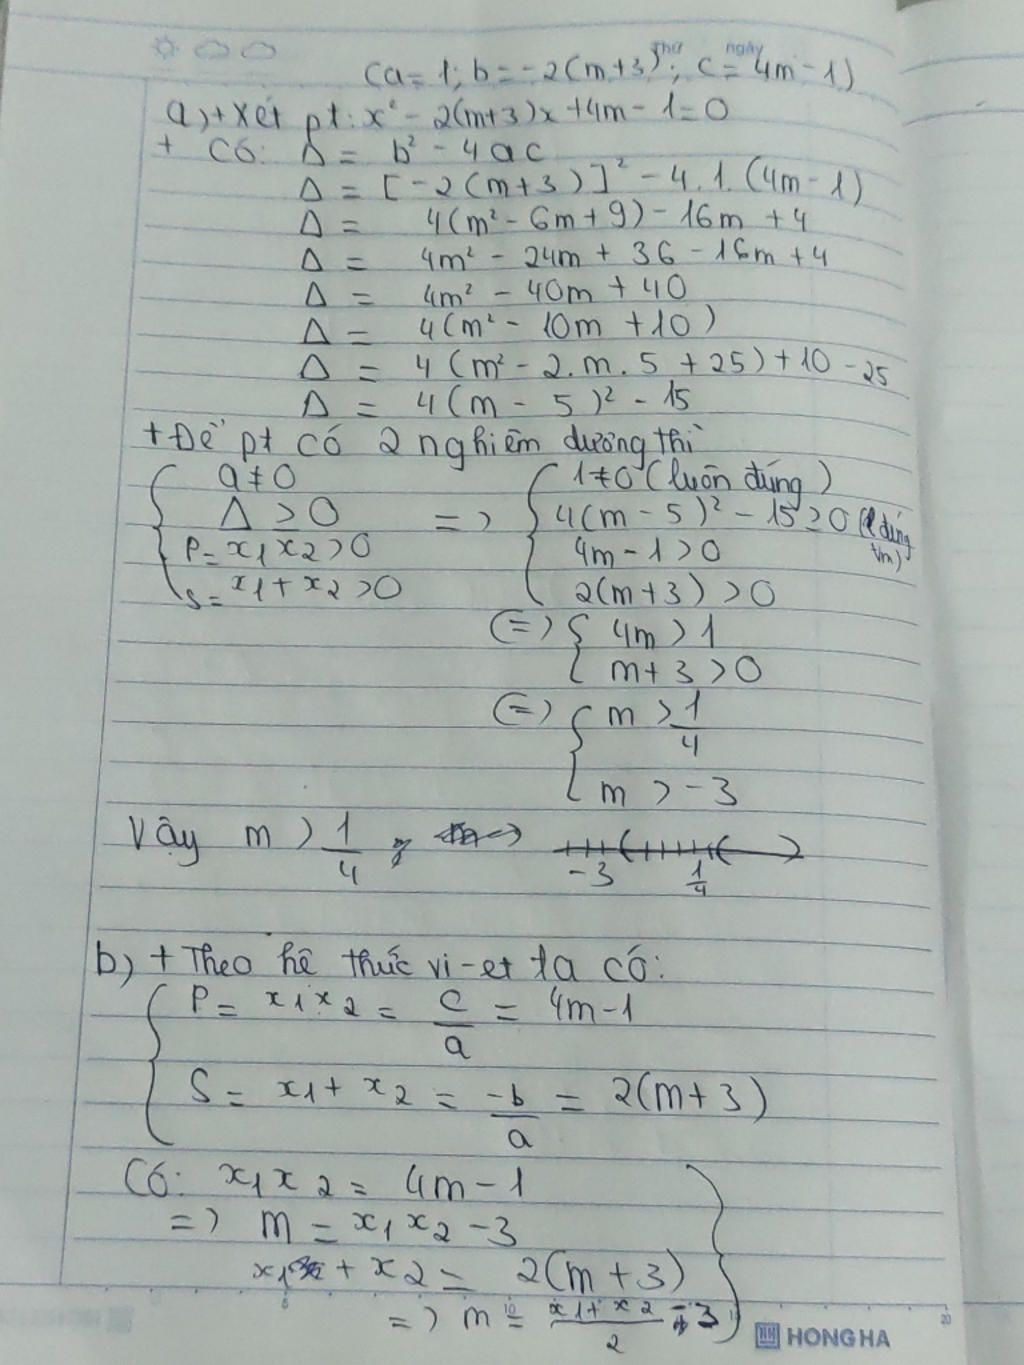 Thứ ngày
(a = 1; b = -2(m+3); c = 4m - 1)
a) + Xét pt: x² - 2(m+3)x + 4m - 1 = 0
+ Có: Δ = b² - 4ac
Δ = [-2(m+3)]² - 4.1.(4m - 1)
Δ = 4(m² - 6m + 9) - 16m + 4
Δ = 4m² - 24m + 36 - 16m + 4
Δ = 4m² - 40m + 40
Δ = 4(m² - 10m + 10)
Δ = 4(m² - 2.m.5 + 25) + 10 - 25
Δ = 4(m - 5)² - 15
+ Để pt có 2 nghiệm dương thì
{ a ≠ 0 { 1 ≠ 0 (luôn đúng)
Δ ≥ 0 => 4(m - 5)² - 15 ≥ 0 (lđúng ∀m)
P = x1x2 > 0 4m - 1 > 0
S = x1 + x2 > 0 2(m+3) > 0
(=) { 4m > 1
m + 3 > 0
(=) { m > 1/4
m > -3
Vậy m > 1/4
-3 1/4
b) + Theo hệ thức vi-et ta có:
{ P = x1x2 = c/a = 4m - 1
S = x1 + x2 = -b/a = 2(m+3)
Có: x1x2 = 4m - 1
=> m = x1x2 - 3
x1 + x2 = 2(m+3)
=> m = (x1 + x2)/2 - 3
5 10 20
HONG HA